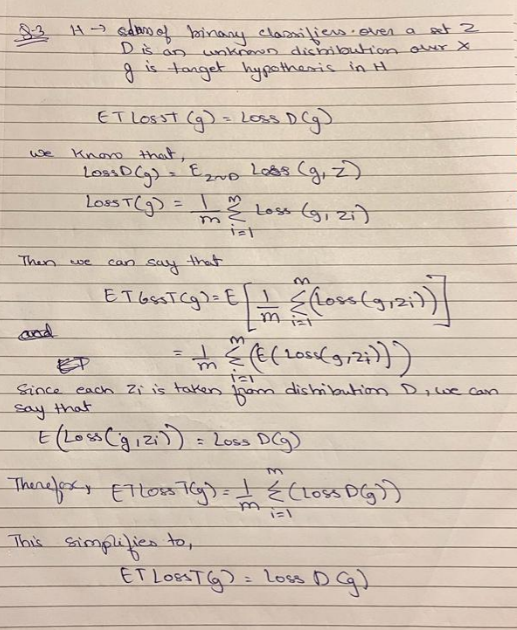 Q.3 H → of binary classifiers over a set Z
D is an unknown distribution over X
g is target hypothesis in H
ET LossT (g) = Loss D(g)
we know that,
LossD(g) = E z~D Loss (g, z)
LossT(g) = 1/m Σ i=1 m Loss (g, zi)
Then we can say that
ET LossT(g) = E[1/m Σ i=1 m (Loss(g, zi))]
and
= 1/m Σ i=1 m (E(Loss(g, zi)))
Since each zi is taken from distribution D, we can
say that
E (Loss(g, zi)) = Loss D(g)
Therefor, ET Loss T(g) = 1/m Σ i=1 m (Loss D(g))
This simplifies to,
ET LossT(g) = Loss D(g)